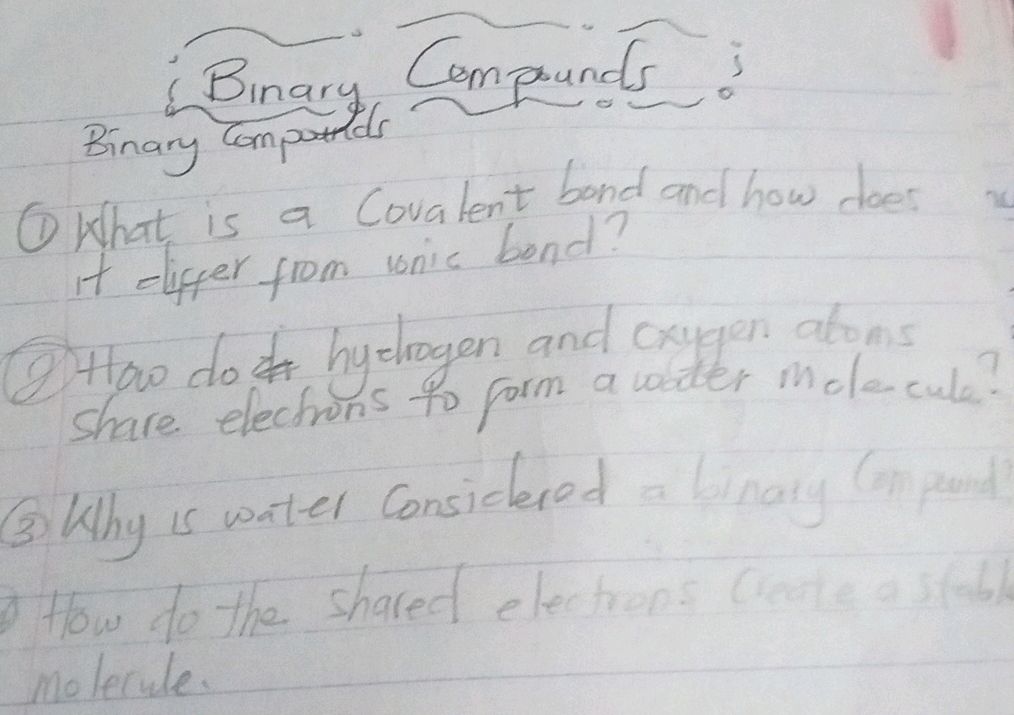 Binary Compounds
Binary Compounds
① What is a Covalent bond and how does
it differ from ionic bond?
② How do hydrogen and oxygen atoms
share electrons to form a water molecule?
③ Why is water Considered a binary Compound?
How do the shared electrons Create a stable
molecule.